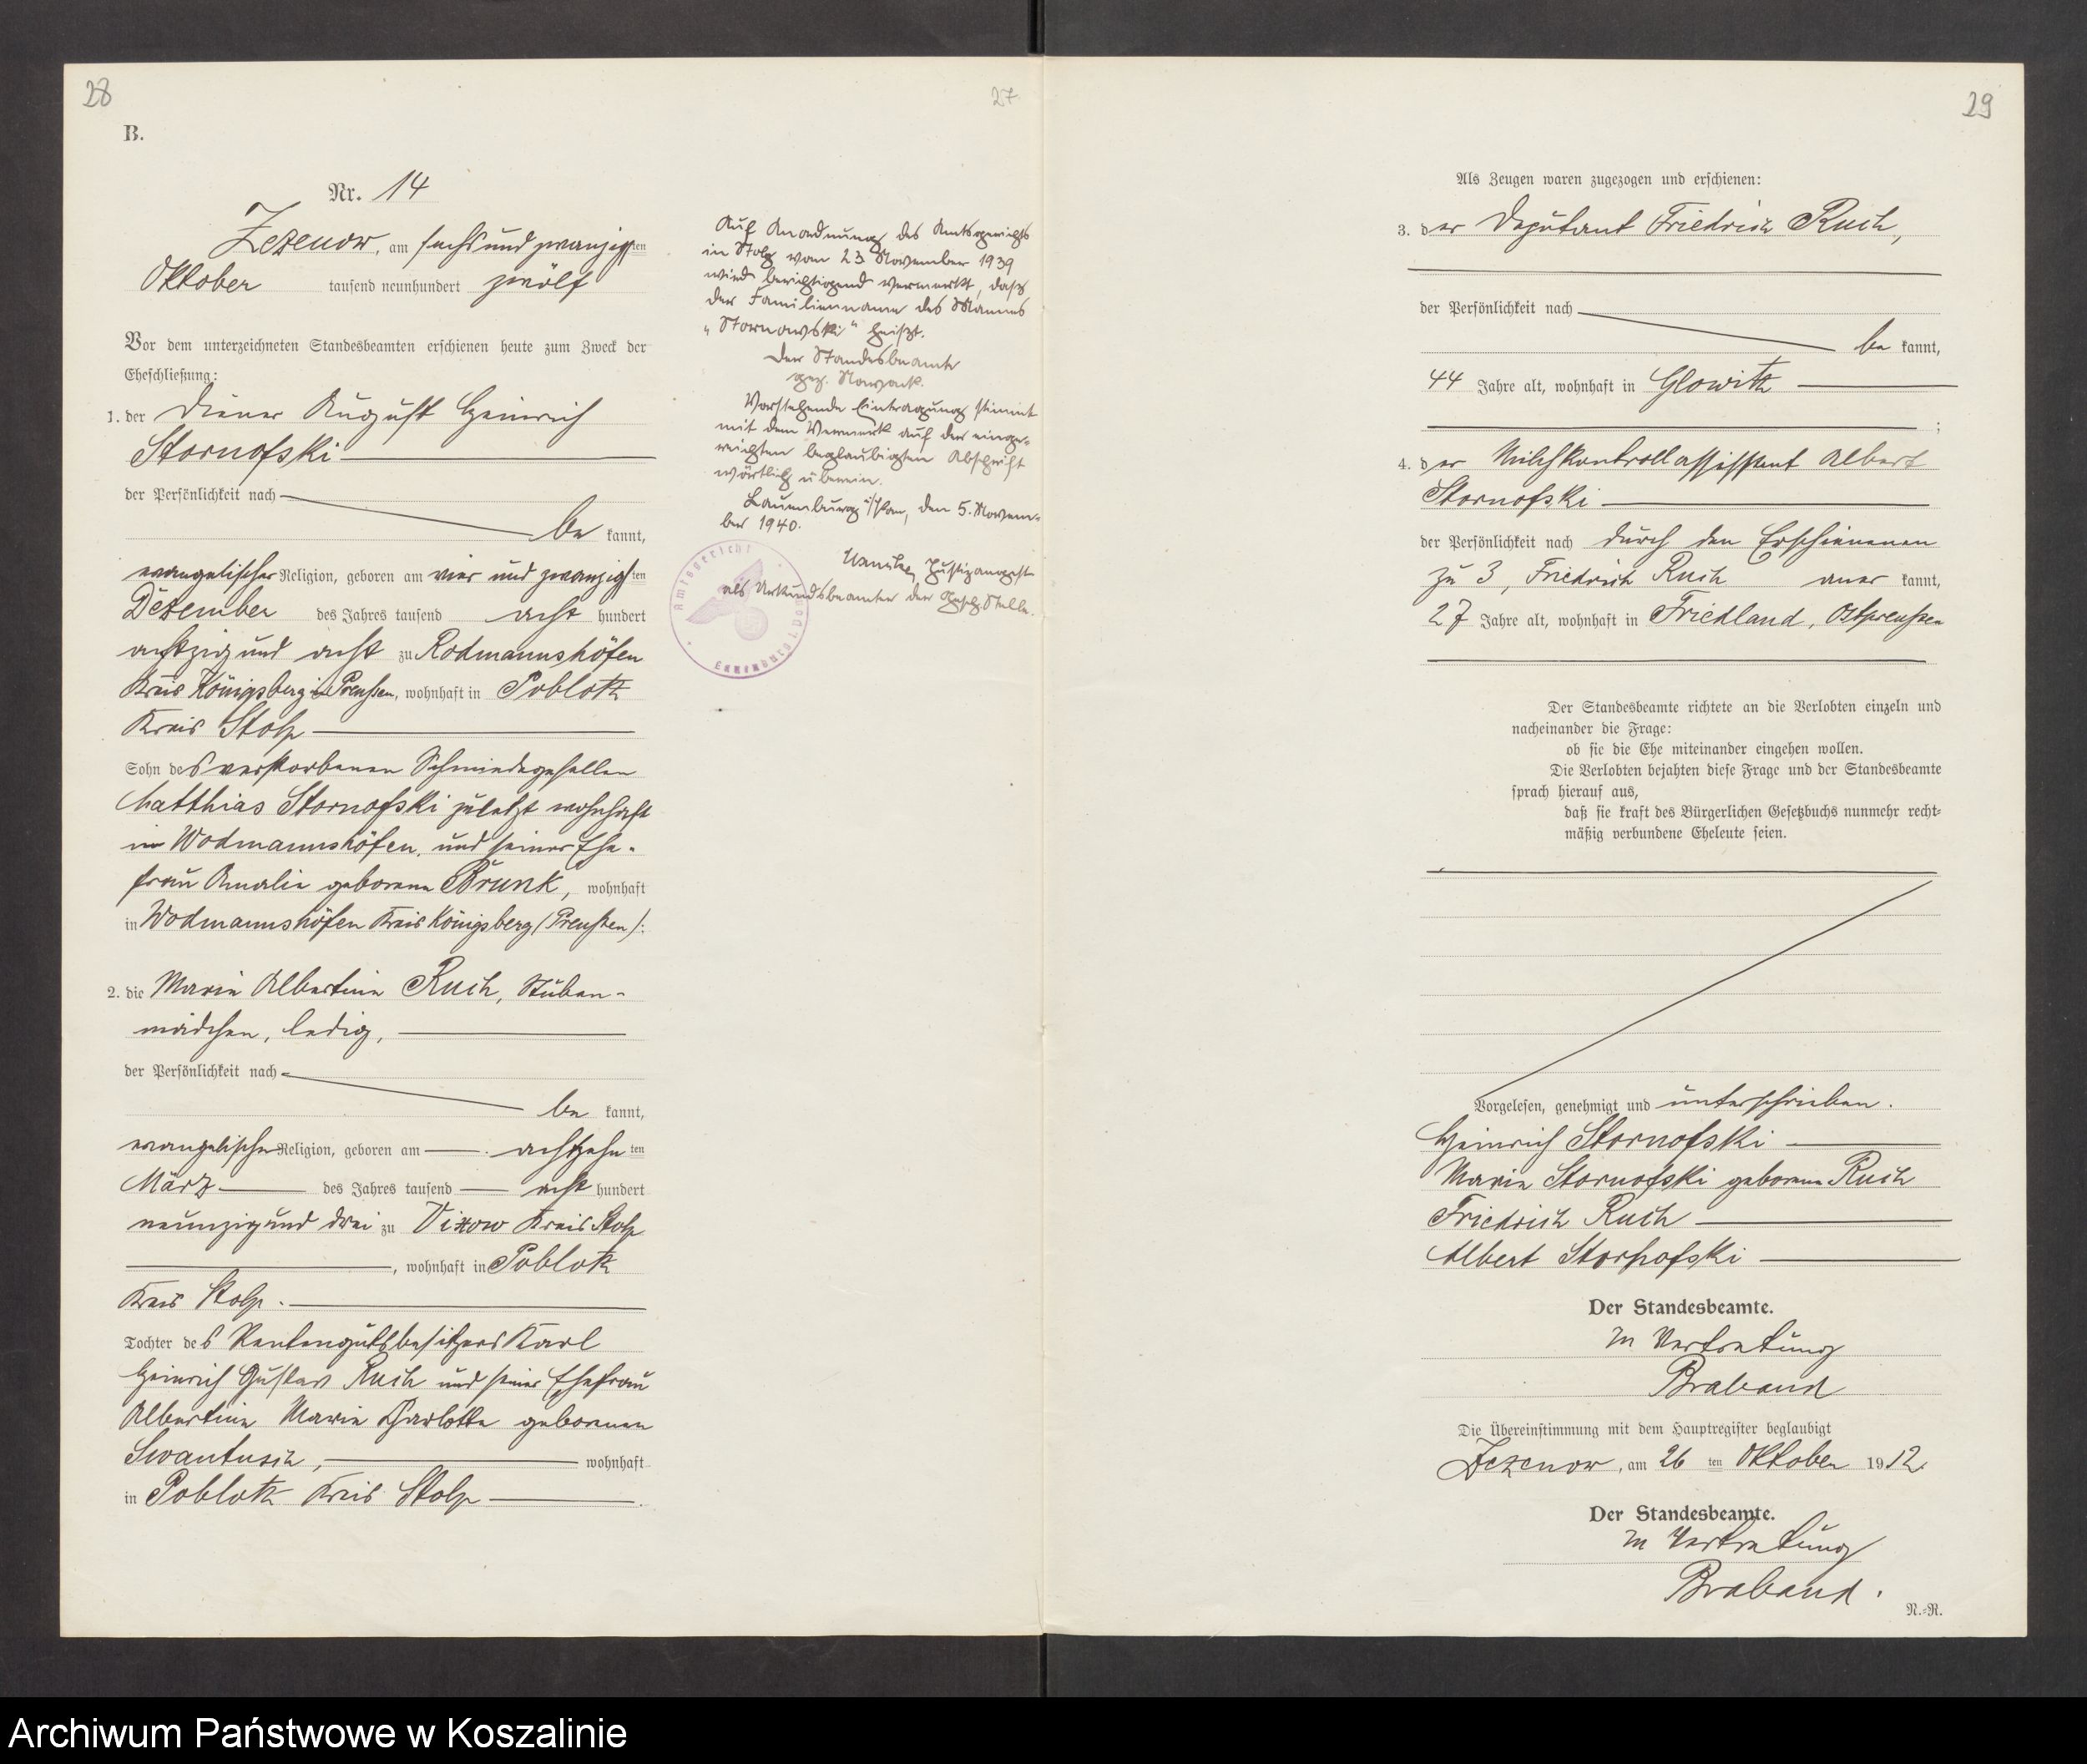 28
27
B.
Nr. 14
Zezenow, am sechsundzwanzigsten
Oktober tausend neunhundert zwölf
Vor dem unterzeichneten Standesbeamten erschienen heute zum Zweck der
Eheschließung:
1. der Diener August Heinrich
Stornofski
der Persönlichkeit nach
be kannt,
evangelischer Religion, geboren am vier und zwanzigsten
Dezember des Jahres tausend acht hundert
achtzig und acht zu Rodmannshöfen
Kreis Königsberg in Preußen, wohnhaft in Poblotz
Kreis Stolp
Sohn des verstorbenen Schmiedegesellen
Matthias Stornofski zuletzt wohnhaft
in Wodmannshöfen, und seiner Ehe-
frau Amalie geborene Brunk, wohnhaft
in Wodmannshöfen Kreis Königsberg (Preußen).
2. die Marie Albertine Ruch, Stuben-
mädchen, ledig,
der Persönlichkeit nach
be kannt,
evangelischer Religion, geboren am achtzehnten
März des Jahres tausend acht hundert
neunzig und drei zu Vixow Kreis Stolp
, wohnhaft in Poblotz
Kreis Stolp.
Tochter des Rentengutsbesitzers Karl
Heinrich Gustav Ruch und seiner Ehefrau
Albertine Marie Charlotte geborenen
Swantusch, wohnhaft
in Poblotz Kreis Stolp.
Auf Anordnung des Amtsgerichts
in Stolp vom 23 November 1939
wird berichtigend vermerkt, daß
der Familienname des Mannes
„Stornowski" heißt.
Der Standesbeamte
gez. Nowack.
Vorstehende Eintragung stimmt
mit dem Vermerk auf der einge-
reichten beglaubigten Abschrift
wörtlich überein.
Lauenburg i/Pom, den 5. Novem-
ber 1940.
Justizangest.
als Urkundsbeamter der Gesch. Stelle.
Amtsgericht
Lauenburg
29
Als Zeugen waren zugezogen und erschienen:
3. der Deputant Friedrich Ruch,
der Persönlichkeit nach
be kannt,
44 Jahre alt, wohnhaft in Glowitz
;
4. der Milchkontrollassistent Albert
Stornofski
der Persönlichkeit nach durch den Erschienenen
zu 3, Friedrich Ruch aner kannt,
27 Jahre alt, wohnhaft in Friedland, Ostpreußen
Der Standesbeamte richtete an die Verlobten einzeln und
nacheinander die Frage:
ob sie die Ehe miteinander eingehen wollen.
Die Verlobten bejahten diese Frage und der Standesbeamte
sprach hierauf aus,
daß sie kraft des Bürgerlichen Gesetzbuchs nunmehr recht-
mäßig verbundene Eheleute seien.
Vorgelesen, genehmigt und unterschrieben.
Heinrich Stornofski
Marie Stornofski geborene Ruch
Friedrich Ruch
Albert Stornofski
Der Standesbeamte.
In Vertretung
Braband
Die Übereinstimmung mit dem Hauptregister beglaubigt
Zezenow, am 26 ten Oktober 1912.
Der Standesbeamte.
In Vertretung
Braband.
N.-R.
Archiwum Państwowe w Koszalinie